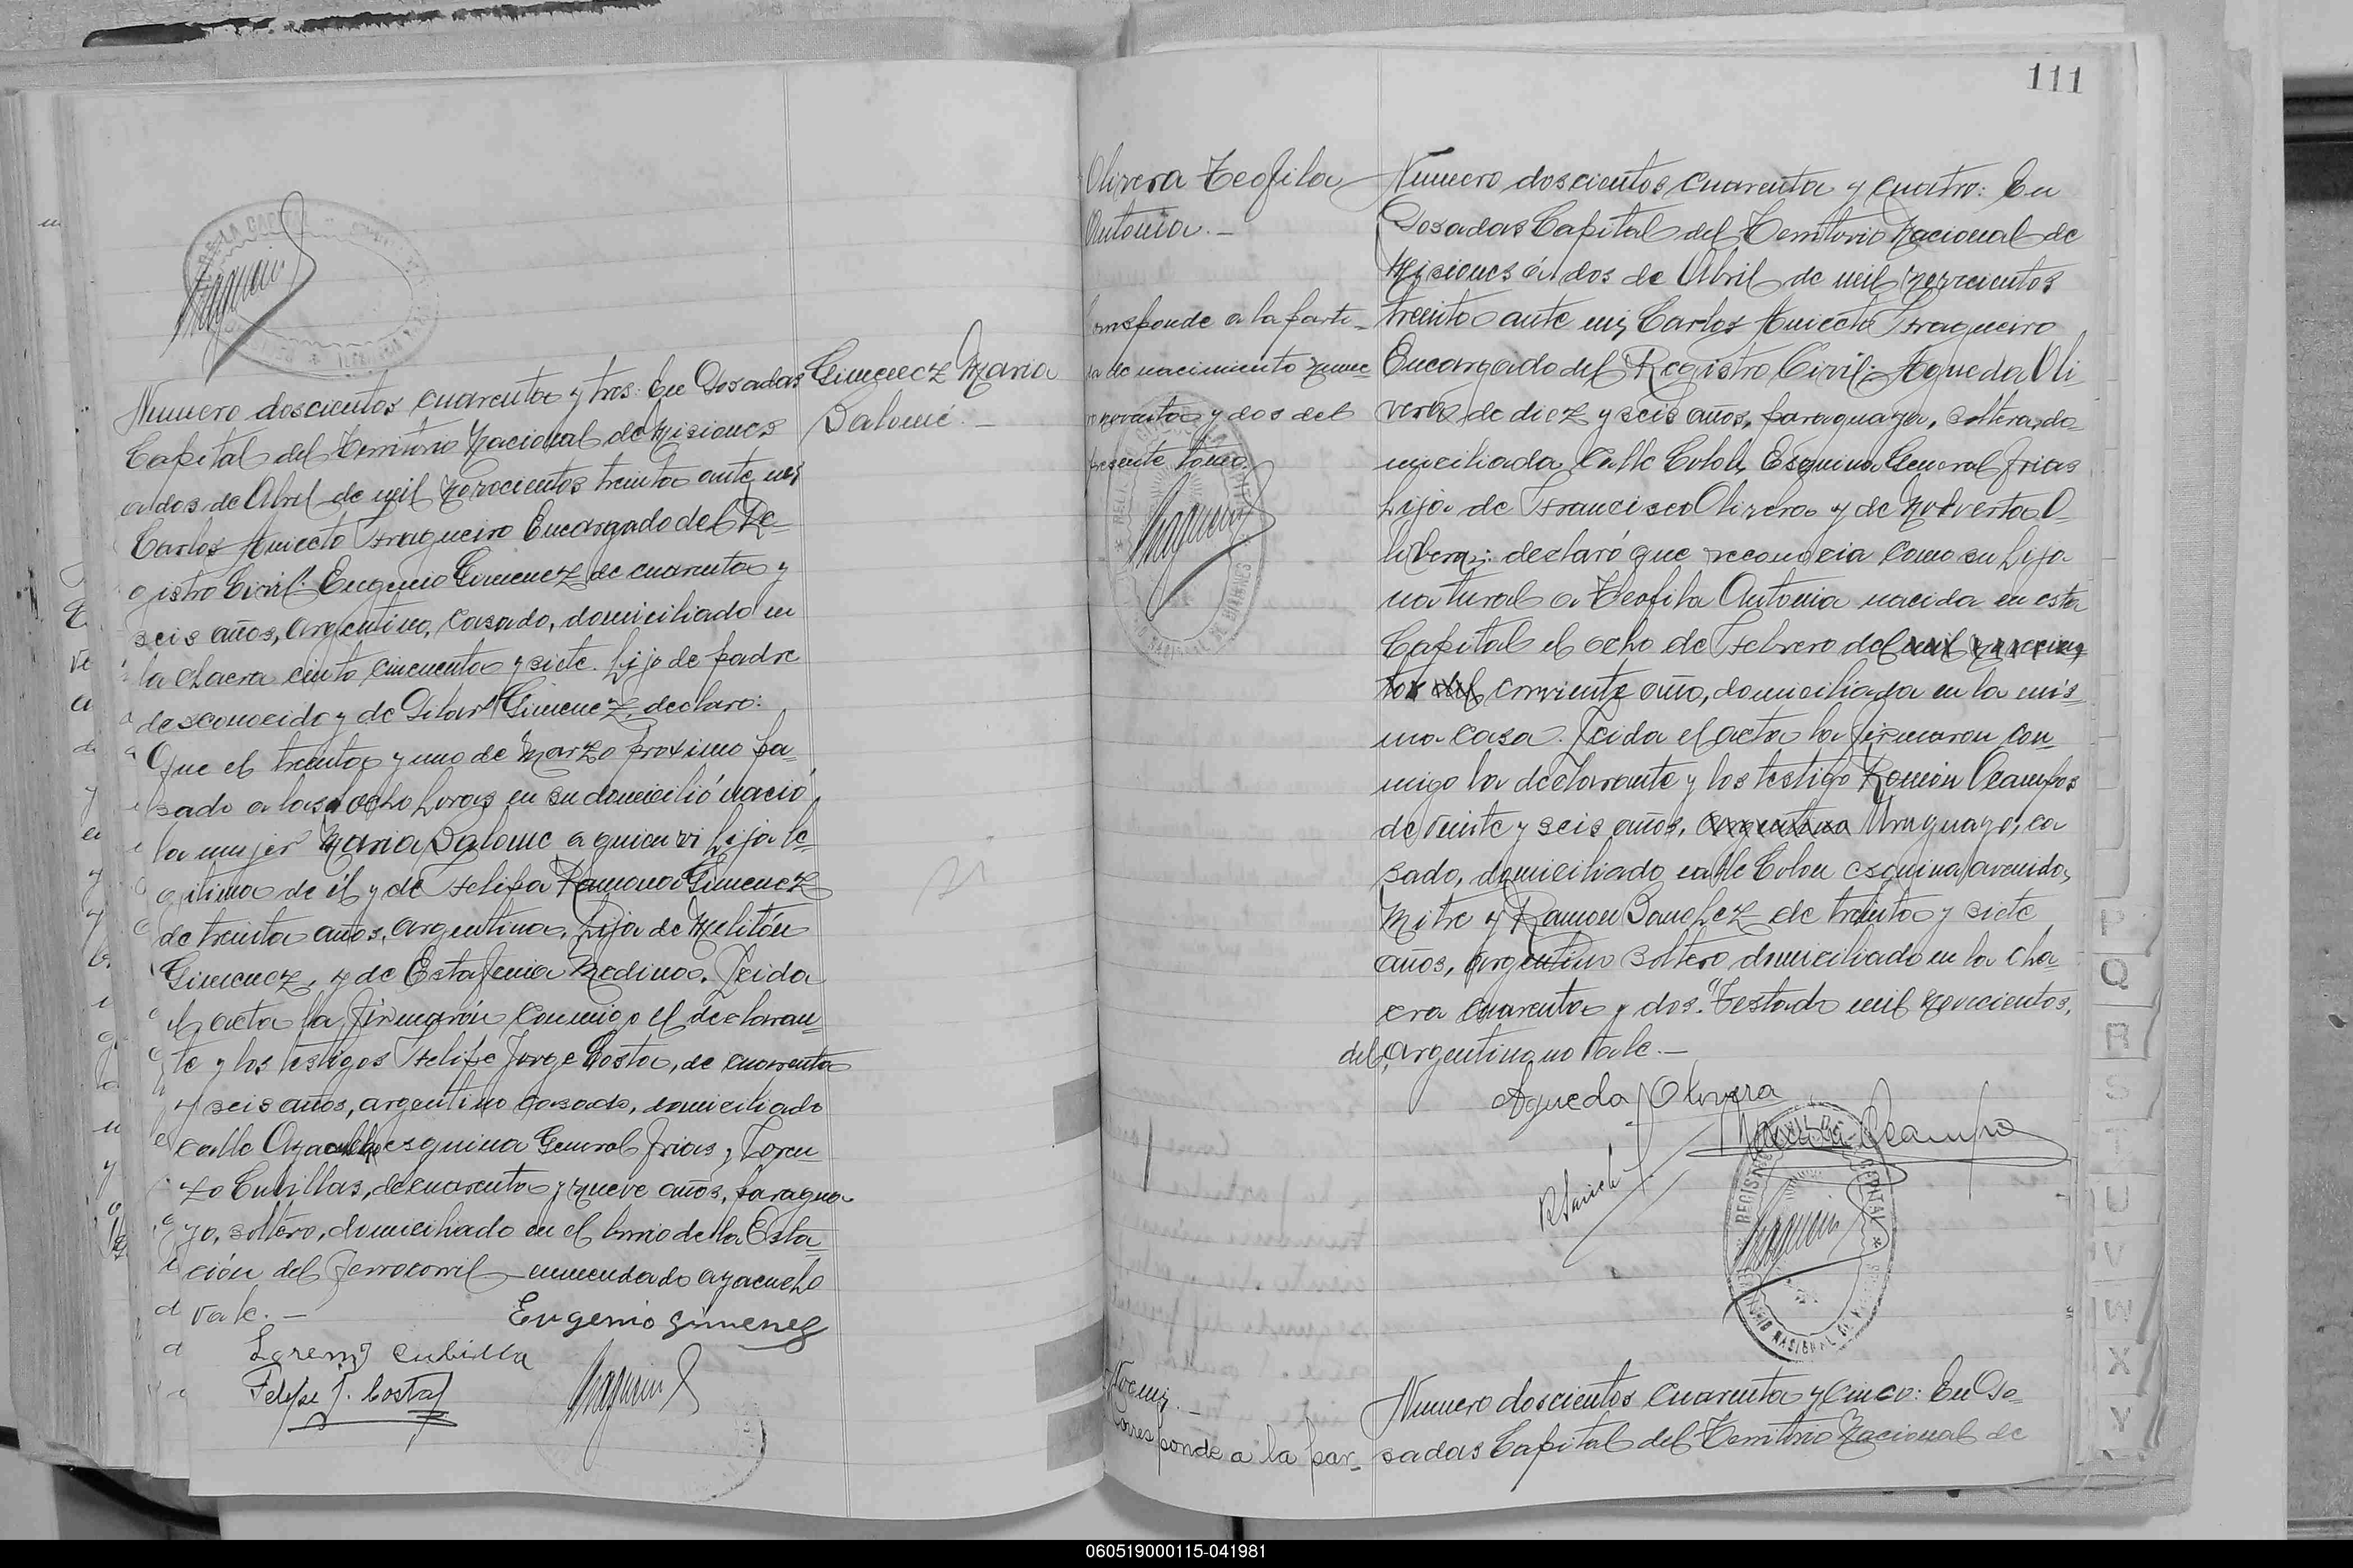 Numero doscientos cuarenta y tres: En Posadas
Capital del Territorio Nacional de Misiones
a dos de Abril de mil novocientos treinta ante mi,
Carlos Aniceto Fragueiro Encargado del Re-
gistro Civil: Eugenio Gimenez de cuarenta y
seis años, argentino, casado, domiciliado en
la chacra ciento cincuenta y siete. hijo de padre
desconocido y de Pilar Gimenez, declaro:
Que el treinta y uno de Marzo proximo pa-
sado a las ocho horas en su domicilió nació
la mujer Maria Salome a quien vi hija le-
gitima de él y de Felipa Ramona Gimenez
de treinta años, argentina, hija de Melitón
Gimenez, y de Estafenia Medina. Leida
el acta la firmarón conmigo el declaran-
te y los testigos Felipe Jorge Costa, de cuarenta
y seis años, argentino casado, domiciliado
calle Ayacucho esquina General Frias, y Loren-
zo Cubillas, de cuarenta y nueve años, paragua-
yo, soltero, domiciliado en el barrio de la Esta-
ción del ferrocarril enmendado ayacucho
vale.-
Eugenio Gimenez
Lorenzo Cubilla
Felipe J. Costa
Gimenez Maria
Salomé.-
111
Olivera Teofila
Antonia.-
Corresponde a la parti-
da de nacimiento nume-
ro noventa y dos del
presente tomo.
Numero doscientos cuarenta y cuatro: En
Posadas Capital del Territorio Nacional de
Misiones á dos de Abril de mil novecientos
treinta ante mi, Carlos Aniceto Fragueiro
Encargado del Registro Civil: Agueda Oli
vera de diez y seis años, paraguaya, soltera, do-
miciliada Calle Colon Esquina General Frias
hija de Francisco Olivera y de Notverta O-
livera; declaró que reconocia como su hija
natural a Teofila Antonia nacida en esta
Capital el ocho de Febrero del mil novecien
tos del corriente año, domiciliada en la mis-
ma casa. Leida el acta la firmaron con-
migo la declarante y los testigo Román Ocampos
de veinte y seis años, argentino Uruguayo, ca
sado, domiciliado calle Colon esquina avenida,
Mitre y Ramon Sanchez de treinta y siete
años, argentino soltero domiciliado en la cha-
cra cuarenta y dos. Testado mil novecientos,
del, argentino no vale.-
Agueda Olivera
Ocampo
Noemi.-
Corresponde a la par-
Numero doscientos cuarenta y cinco: En Po-
sadas Capital del Territorio Nacional de
P
Q
R
S
T
U
V
W
X
Y
060519000115-041981